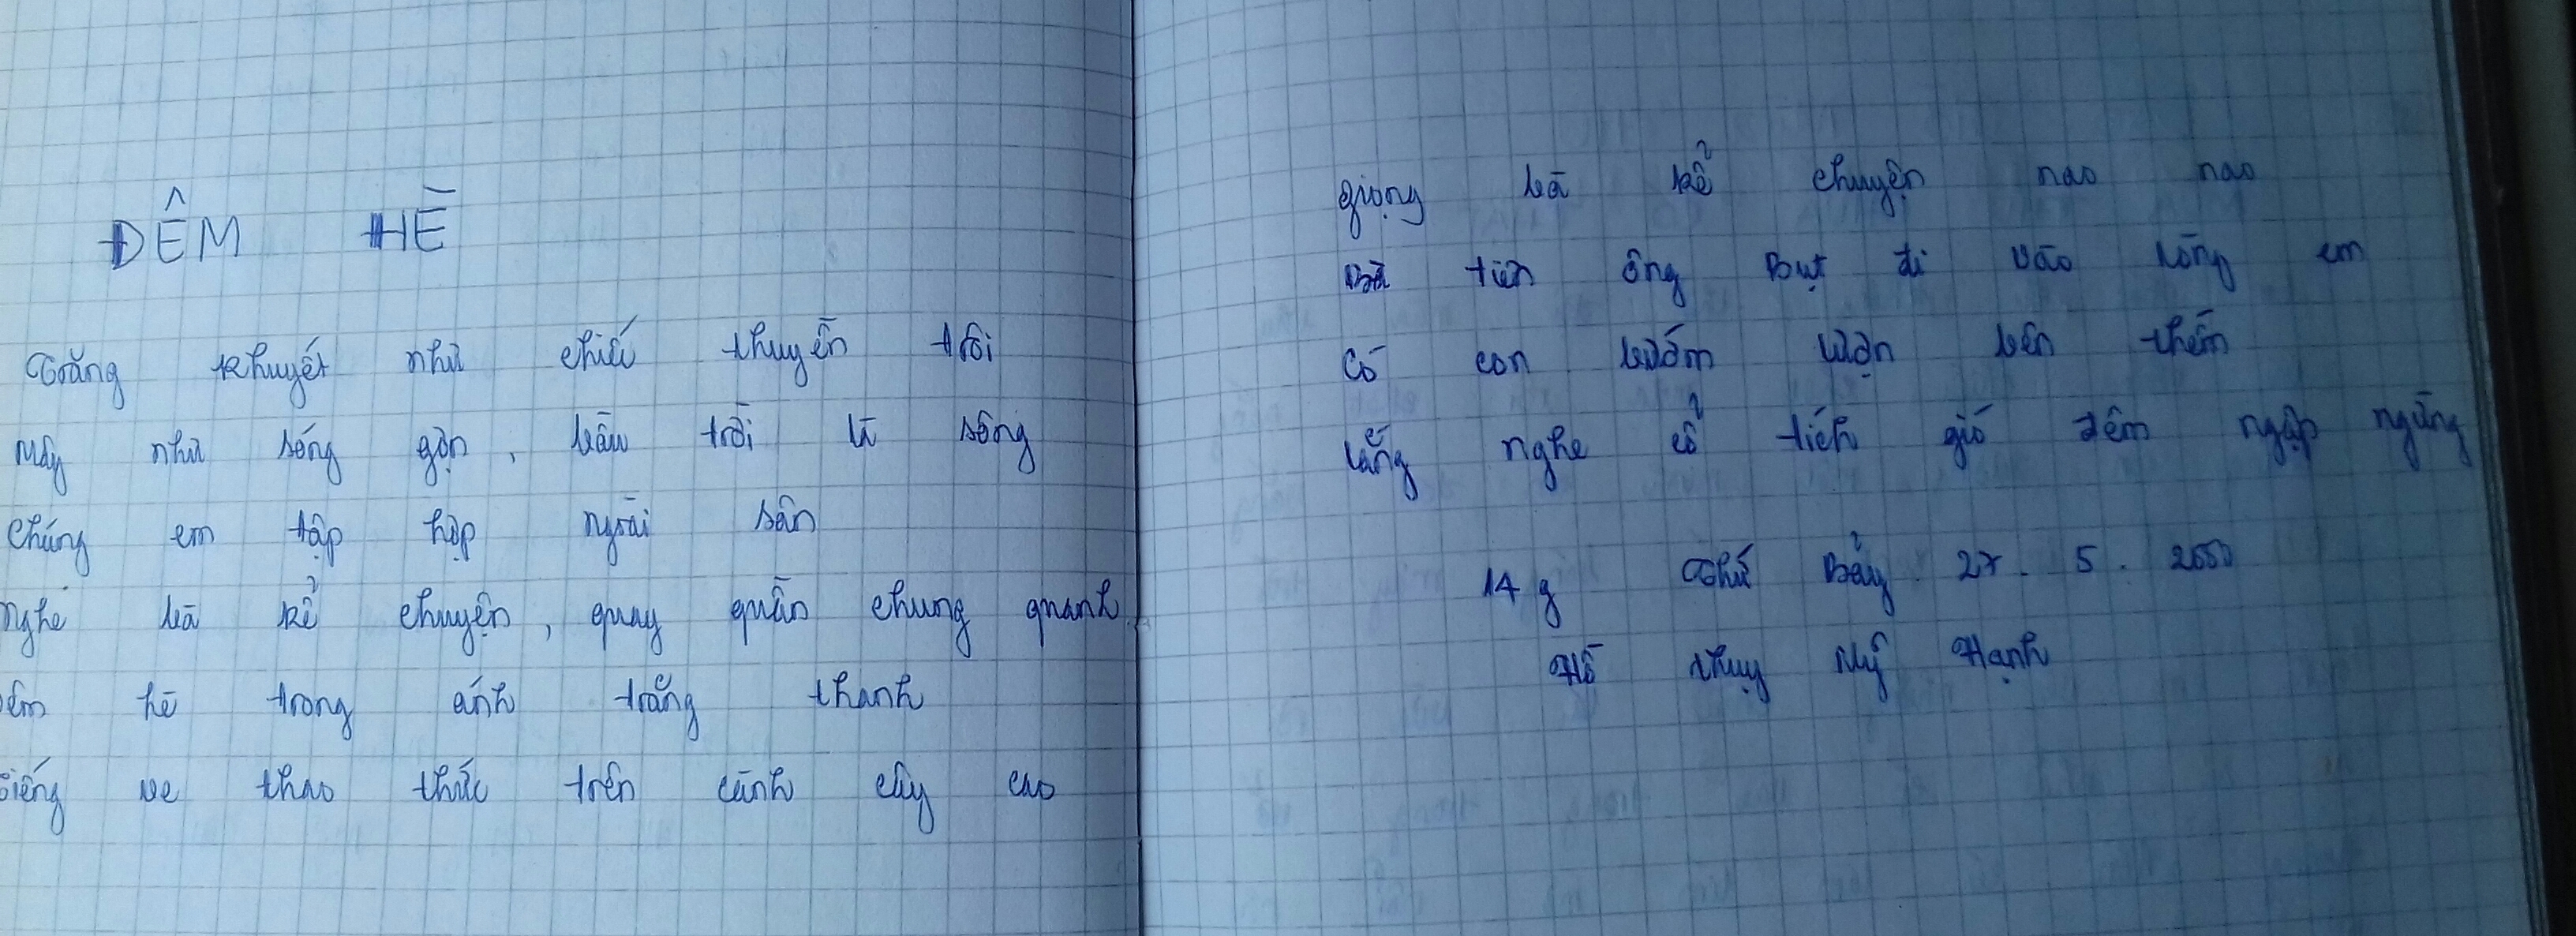 ĐÊM HÈ
Trăng khuyết như chiếc thuyền trôi
Mây như sóng gợn, bầu trời là sông
Chúng em tập hợp ngoài sân
Nghe bà kể chuyện, quay quần chung quanh
Đêm hè trong ánh trăng thanh
Tiếng ve thao thức trên cành cây cao
giọng bà kể chuyện nao nao
Bà tiên ông Bụt đi vào lòng em
Có con bướm lượn bên thềm
Lắng nghe cổ tích gió đêm ngập ngừng
14 g Thứ Bảy 27. 5. 2000
Hồ Thụy Mỹ Hạnh